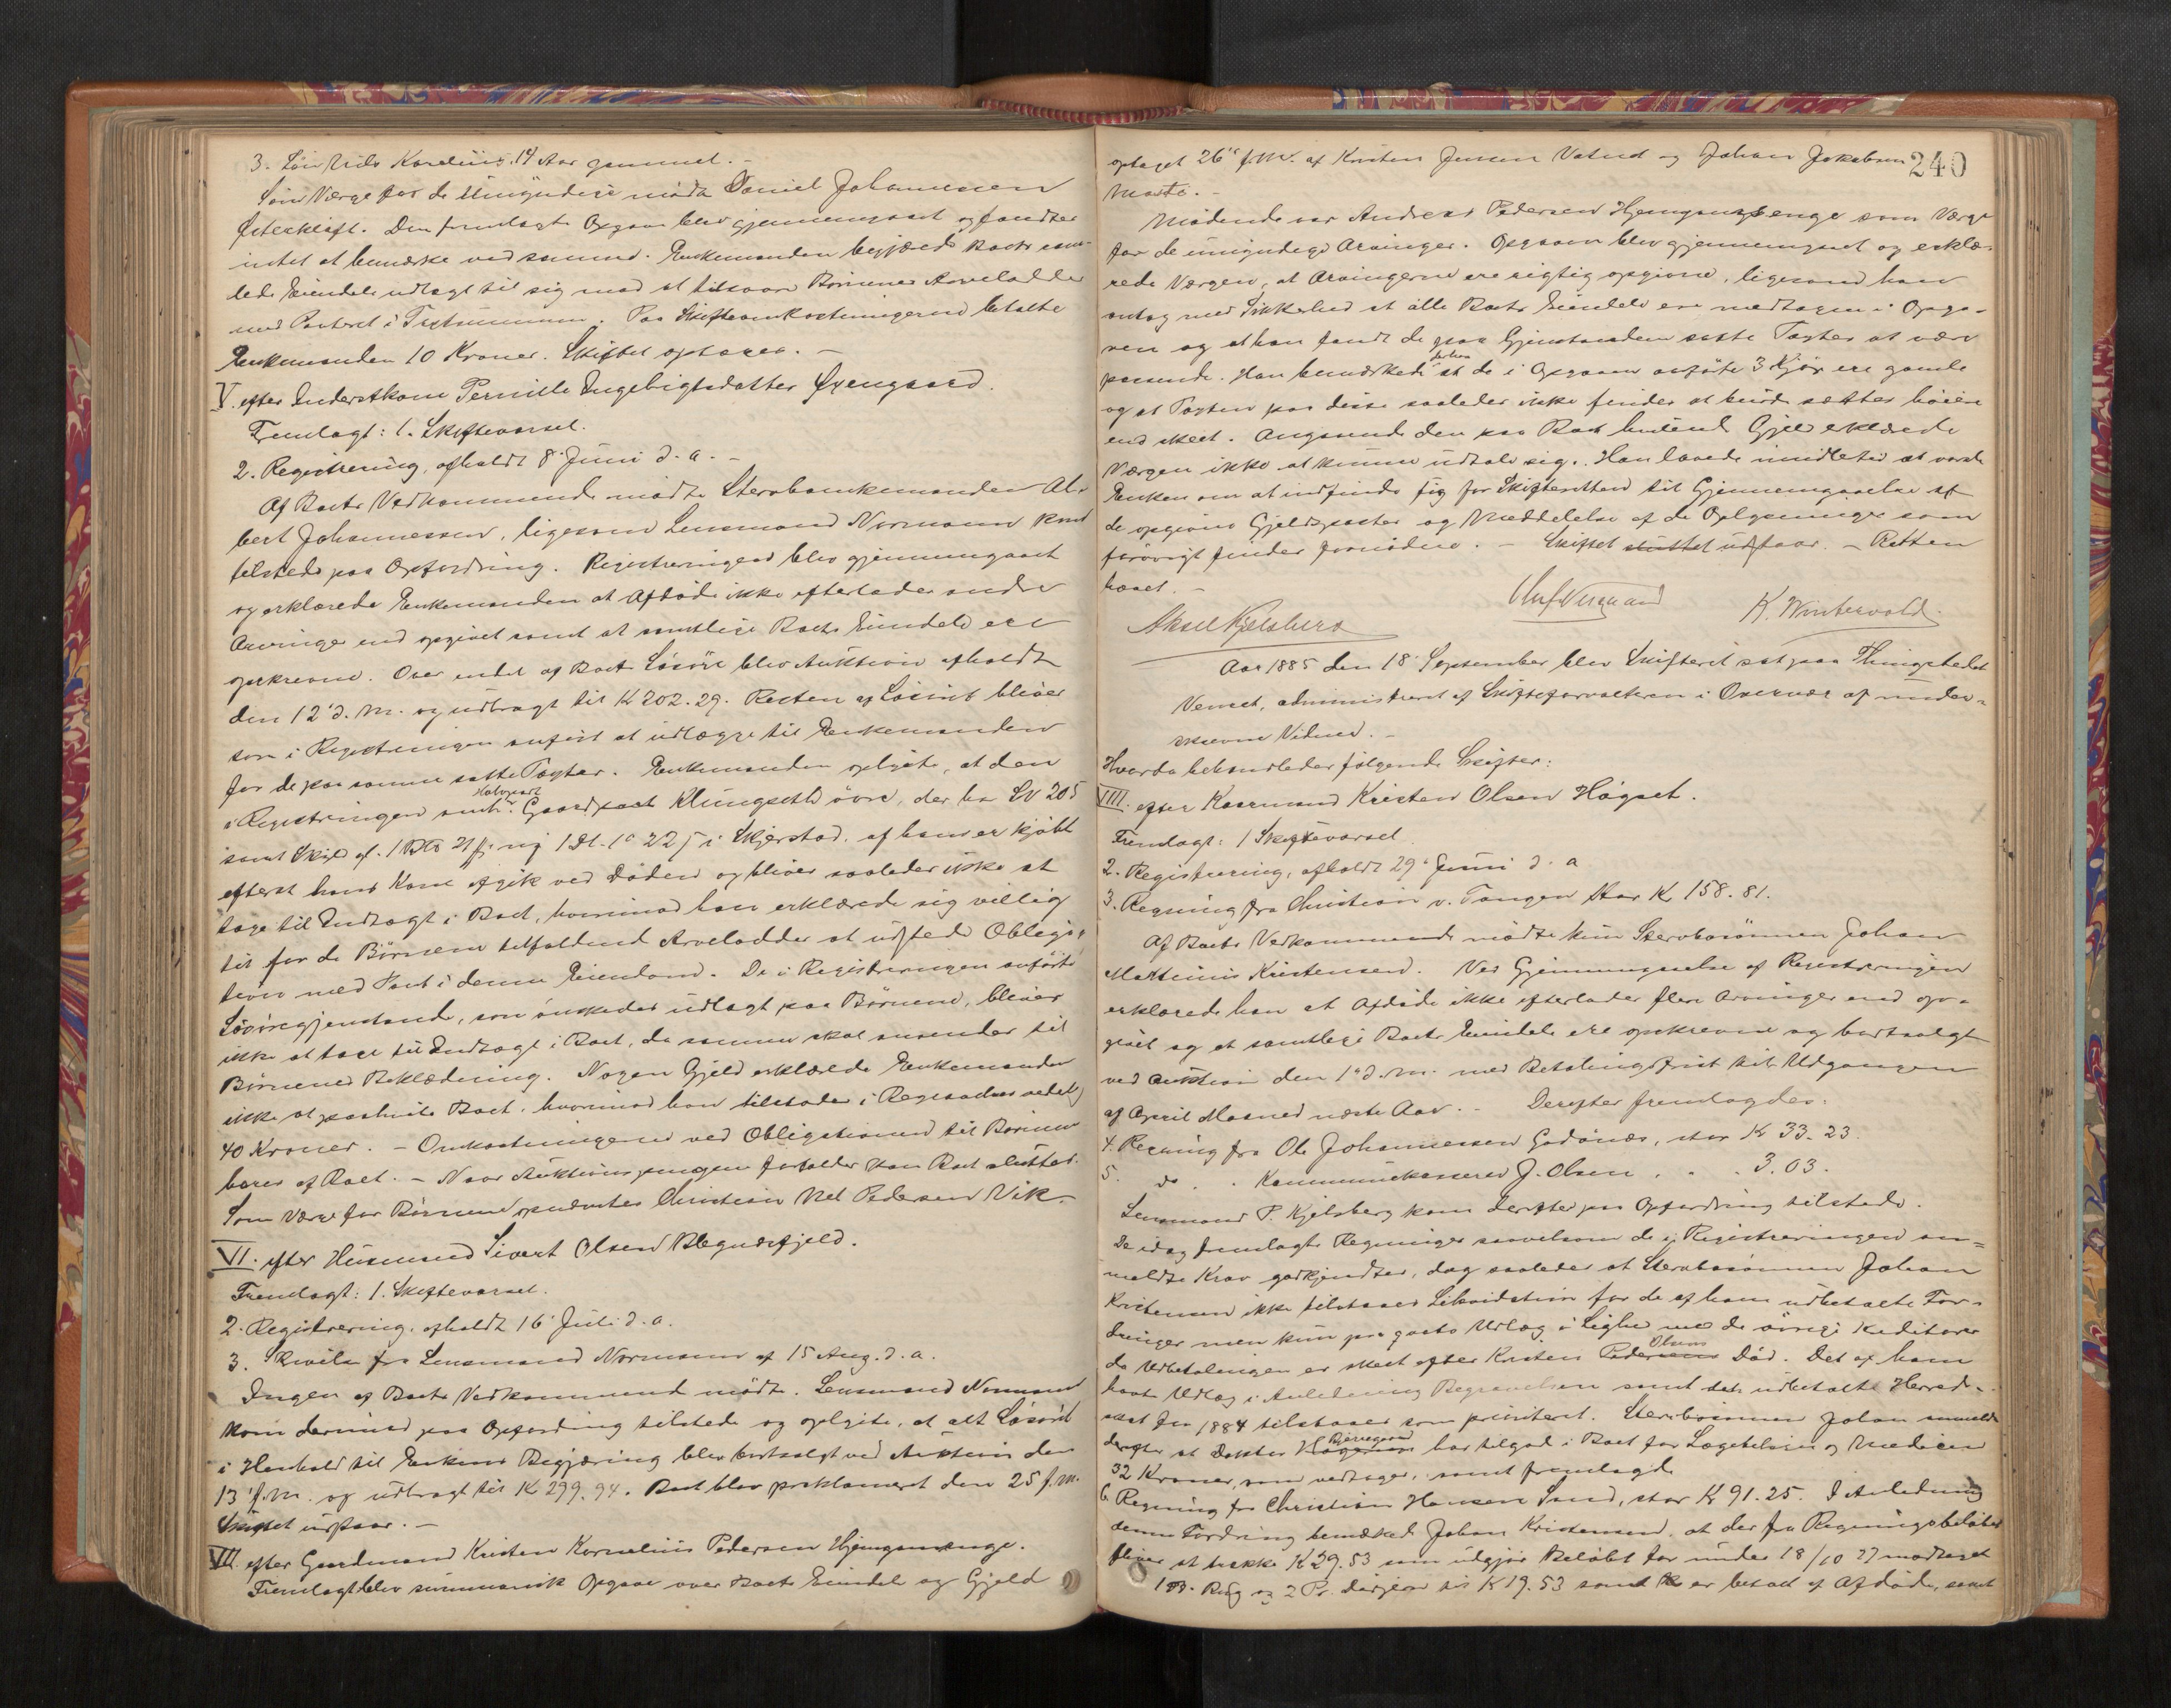 3. Søn Nils Kornelius 14 Aar gammel. -
Som Værge for de Umyndige mødte Daniel Johannessen
Østerkløft. Den fremlagte Opgave blev gjennemgaaet og fandtes
intet at bemærke ved samme. Enkemanden begjærede Boets sam-
lede Eiendele udlagt til sig mod at tilsvare Børnenes Arvelodder
med Panteret i . Paa Skifteomkostningerne betalte
Enkemanden 10 Kroner. Skiftet optages. -
V. efter Inderstkone Pernille Engebrigtsdatter Øxengaard.
Fremlagt: 1. Skiftevarsel.
2. Registrering, afholdt 8' Juni d. a. -
Af Boets Vedkommende mødte Stervboenkemanden Al-
bert Johannessen, ligesom Lensmand Normann kom
tilstede paa Opfordring. Registreringen blev gjennemgaaet
og erklærede Enkemanden at Afdøde ikke efterlader andre
Arvinger end opgivet samt at samtlige Boets Eiendele ere
opskrevne. Over endel af Boets Løsøre blev Auktion afholdt
den 12' d. M. og udbragt til K 202.29. Resten af Løsøret bliver
som i Registreringen anført at udlægge til Enkemanden
for de paa samme satte Taxter. Enkemanden oplyste, at den
i Registreringen anførte Halvpart Gaardpart Klungseth øvre, der har LN 205
samt Skyld af 1 ny i Skjerstad, af ham er kjøbt
efterat hans Kone afgik ved Døden og bliver saaledes ikke at
tage til Indtægt i Boet, hvorimod han erklærede sig villig
til for de Børnene tilfaldende Arvelodder at udstede Obliga-
tion med Pant i denne Eiendom. De i Registreringen anførte
Løsøregjenstande, som ønskedes udlagt paa Børnene, bliver
ikke at tage til Indtægt i Boet, da samme skal anvendes til
Børnenes Beklædning. Nogen Gjeld erklærede Enkemanden
ikke at paahvile Boet, hvorimod han tilstodes i
40 Kroner. - Omkostningerne ved Obligationen til Børnene
bæres af Boet. - Naar Auktionspengene forfalder kan Boet sluttes.
Som Værge for Børnene opnævntes Christian Nel Pedersen Vik. -
VI. efter Husmand Sivert Olsen Blegnesfjeld.
Fremlagt: 1. Skiftevarsel.
2. Registrering, afholdt 16' Juli d. a.
3. Skrivelse fra Lensmand Normann af 15 Aug. d. a.
Ingen af Boets Vedkommende mødte. Lensmand Normann
kom derimod paa Opfordring tilstede og oplyste, at alt Løsøret
i Henhold til Enkens Begjæring blev bortsolgt ved Auktion den
13' f. M. og udbragt til K 299.94. Boet blev proklameret den 25 f. M.
Skiftet udstaar. -
VII. efter Gaardmand Kristen Kornelius Pedersen Hjemgamenge.
Fremlagt blev summarisk Opgave over Boets Eiendele og Gjeld
optaget 26' f. M. af Kristen Jensen Vatned og Johan Jakobsen 240
Marti. -
Mødende var Andreas Pedersen Hjemgamenge som Værge
for de umyndige Arvinger. Opgaven blev gjennemgaaet og erklæ-
rede Værgen, at Arvingerne ere rigtig opgivne, ligesom han
antog med Sikkerhed at alle Boets Eiendele ere medtagne i Opga-
ven og at han fandt de paa Gjenstandene satte Taxter at være
passende. Han bemærkede derhos at de i Opgaven anførte 3 Kjør ere gamle
og at Taxten paa disse saaledes ikke findes at burde sættes høiere
end skeet. Angaaende den paa Boet hvilende Gjeld erklærede
Værgen ikke at kunne udtale sig. Han lovede imidlertid at varsle
Enken om at indfinde sig for Skifteretten til Gjennemgaaelse af
de opgivne Gjeldsposter og Meddelelse af de Oplysninger som
forøvrigt findes fornødne. - Skiftet sluttet udstaar. - Retten
hævet. -
Aksel Kjelsberg Oluf Nergaard K. Wintervold.
Aar 1885 den 18' September blev Skifteret sat paa Thingstedet
Venset, administreret af Skifteforvalteren i Overvær af under-
skrevne Vidner. -
Hvorda behandledes følgende Skifter:
VIII. efter Kaarmand Kristen Olsen Høgset.
Fremlagt: 1 Skiftevarsel.
2. Registrering, afholdt 29' Juni d. a
3. Regning fra Christian v. Tangen stor K 158.81.
Af Boets Vedkommende mødte kun Stervbosønnen Johan
Martinius Kristensen. Ved Gjennemgaaelse af Registreringen
erklærede han at Afdøde ikke efterlader flere Arvinger end op-
givet og at samtlige Boets Eiendele ere opskrevne og bortsolgt
ved Auktion den 1' d. M. med Betalingsfrist til Udgangen
af April Maaned næste Aar. - Derefter fremlagdes:
4. Regning fra Ole Johannessen Godønes, stor K 33.23.
5. do . . Kommunekasserer J. Olsen . . . 3.03.
Lensmand P. Kjelsberg kom derefter paa Opfordring tilstede.
De idag fremlagte Regninger saavelsom de i Registreringen an-
meldte Krav godkjendtes, dog saaledes at Stervbosønnen Johan
Kristensen ikke tilstaaes Likvidation for de af ham udbetalte For-
dringer men kun pro qvota Udlæg i Lighed med de øvrige Kreditorer
da Udbetalingen er skeet efter Kristen Pedersens Olsens Død. Det af ham
havte Udlæg i Anledning Begravelsen samt den udbetalte Herreds-
skat for 1884 tilstaaes som prioriteret. Stervbosønnen Johan anmeldte
derefter at Doktor Bjerregaard har tilgode i Boet for Lægetilsyn og Medicin
32 Kroner, som vedtoges, samt fremlagde
6. Regning fra Christian Hansen Sund, stor K 91.25. I Anledning
denne Fordring bemærkede Johan Kristensen, at der fra Regningsbeløbet
bliver at trække K 29.53 som udgjør Beløbet for under 18/10 77 modtaget
1 Rug og 2 Pr. til K 19.53 samt K er betalt af Afdøde, samt